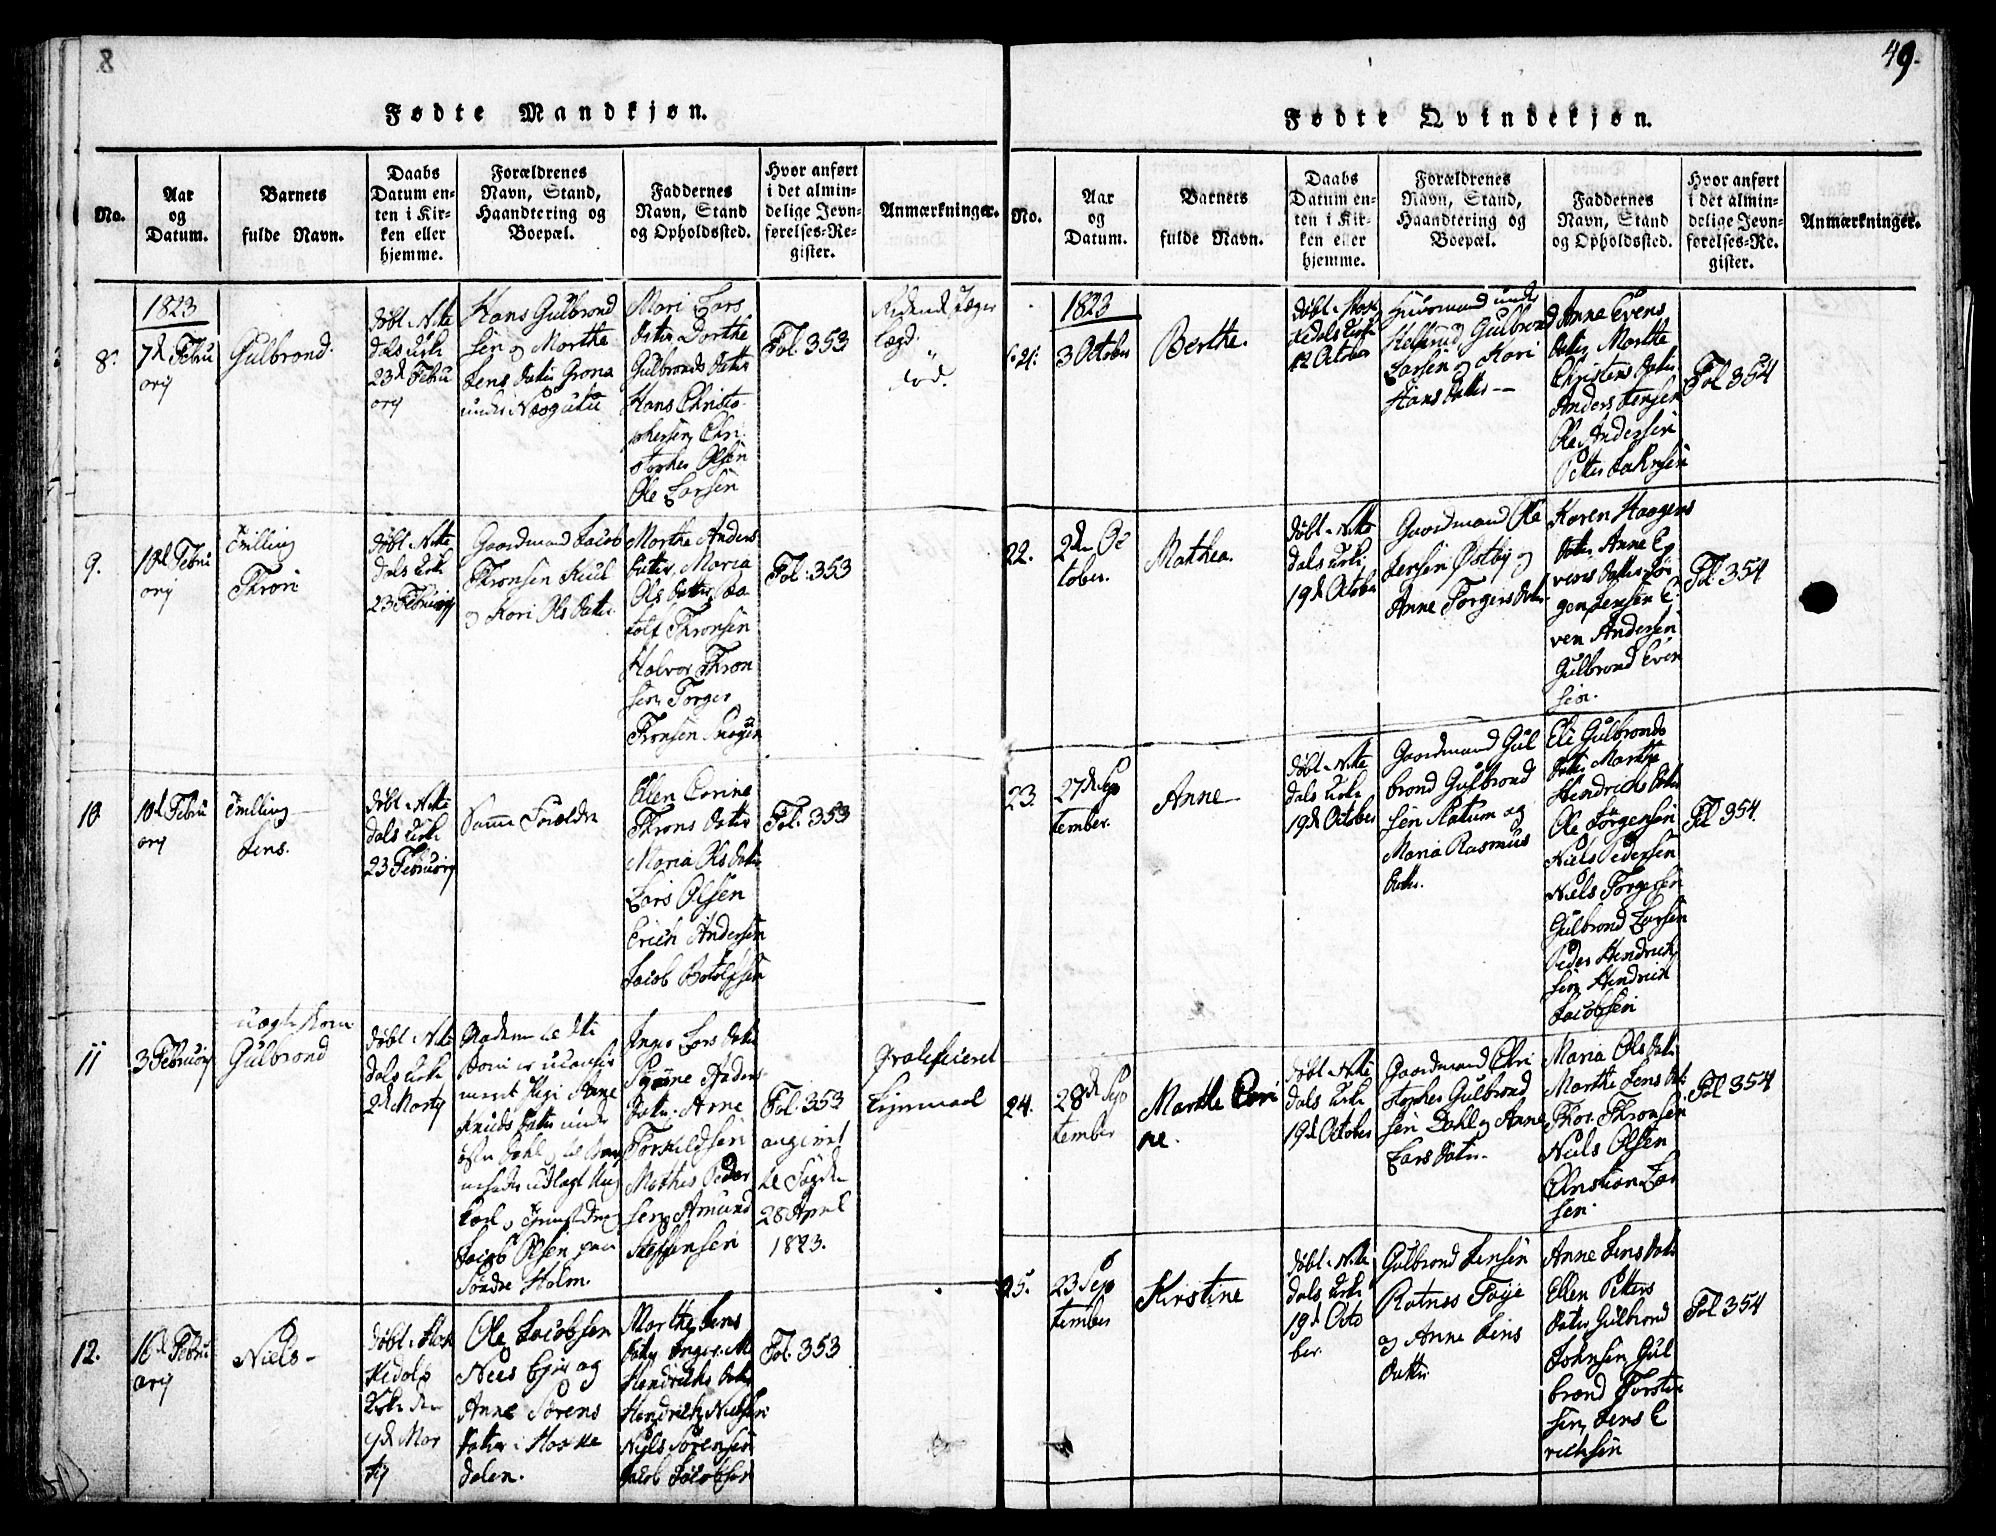 8
49.
Fødte Mandkjøn.
No.
Aar
og
Datum.
Barnets
fulde Navn.
Daabs
Datum en-
ten i Kir-
ken eller
hjemme.
Forældrenes
Navn, Stand,
Haandtering og
Boepæl.
Faddernes
Navn, Stand
og Opholdssted.
Hvor anført
i det almin-
delige Jevn-
førelses-Re-
gister.
Anmærkninger.
8.
1823
7d Febru
ary
Gulbrand.
døbt i Nitte
dals Kirke
23d Febru
ary
Hans Gulbrand
sen og Marthe
Jens datter Grona
under
Mari Lars
datter Dorthe
Gulbrands datter
Hans Christo-
phersen, Chri-
stopher Olsen
Ole Larsen
Fol. 353
død.
9.
10d Febru
ary
Tvilling
Thron
døbt i Nitte
dals Kirke
23 February
Gaardmand Jacob
Thronsen Kuul
og Kari Ols datter
Marthe Anders
datter, Maria
Ols datter
Thronsen
Halvor Thron
sen, Torger
Thronsen
Fol. 353
10
10d Febru
ary
Tvilling
Jens.
døbt i Nitte
dals Kirke
23 February
Samme Forældre
Ellen Corine
Throns datter
Maria Ols datter
Lars Olsen
Erich Andersen
Jacob Botolfsen
Fol. 353
11
3 February
uægte
Gulbrand
døbt i Nitte
dals Kirke
2d Marty
som er
Pige Anne
Knuds datter under
Dahl
udlagt Ung
karl
Jacob Olsen paa
Søndre Holm.
Inger Lars datter
Anders
datter, Arne
Torkildsen
Mathis Peder
sen, Amund
Steffensen
Fol. 353
angivet
28 April
1823.
12.
16d Febru
ary
Niels
døbt i Hak
kedals
Kirke den
9d Mar
ty
Ole Jacobsen
Nees Eyer og
Anne Sørens
datter i Hakke
dalen.
Marthe Jens
datter Inger
Hendrichs datter
Hendrich Nielsen
Niels Sørensen
Jacob Jacobsen
Fol. 353
Fødte Qvindekjøn.
No.
Aar
og
Datum.
Barnets
fulde Navn.
Daabs
Datum en-
ten i Kir-
ken eller
hjemme.
Forældrenes
Navn, Stand,
Haandtering og
Boepæl.
Faddernes
Navn, Stand
og Opholdssted.
Hvor anført
i det almin-
delige Jevn-
førelses-Re-
gister.
Anmærkninger.
21.
1823
3 October
Berthe.
døbt i Hak
kedals Kirke
12 October
Huusmand under
Gulbrand
Larsen og Kari
Hans datter
Anne Evens
datter, Marthe
Christens datter
Anders Jensen
Ole Andersen
Petter Jahnsen
Fol 354
22.
2den Oc
tober.
Mathea.
døbt i Nitte
dals Kirke
19d October
Gaardmand Ole
Jensen Østby og
Anne Torgers datter
Karen Haagens
datter, Anne E
vens datter, Jør
gen Jensen E
ven Andersen
Gulbrand Even
sen.
Fol. 354
23.
27d Sep
tember.
Anne
døbt i Nitte
dals Kirke
19d October
Gaardmand Gul
brand Gulbrand
sen Slatum og
Maria Rasmus
datter.
Eli Gulbrands
datter Marthe
Hendrichs datter
Ole Jørgensen
Niels Pedersen
Niels Torgersen
Gulbrand Larsen
Peder Hendrich
sen, Hendrich
Jacobsen
Fol 354.
24.
28d Sep
tember
Marthe Cori
ne.
døbt i Nitte
dals Kirke
19d October
Gaardmand Chri
stopher Gulbrand
sen Dahl og Anne
Lars datter
Maria Ols datter
Marthe Jens datter
Thor Thronsen
Niels Olsen
Christian Lar
sen.
Fol 354
25.
23 Sep
tember
Kirstine
døbt i Nitte
dals Kirke
19d Octo
ber.
Gulbrand Jensen
Rotnes Eye
og Anne Jens
datter
Anne Jens datter
Ellen Petters
datter Gulbrand
Johnsen, Gul
brand Torsten
sen, Jens E
richsen
Fol 354